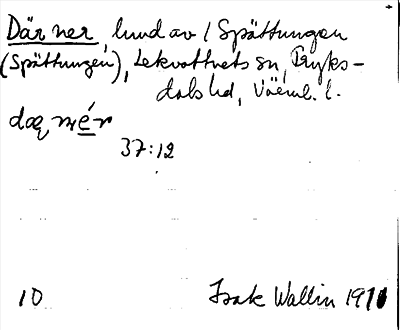 Där ner, lund av / Spättungen
(Spättungen), Lekvattnets sn, Fryks-
dals hd, Värml. l.
dæ̨ nér
37:12
10 Isak Wallin 1911